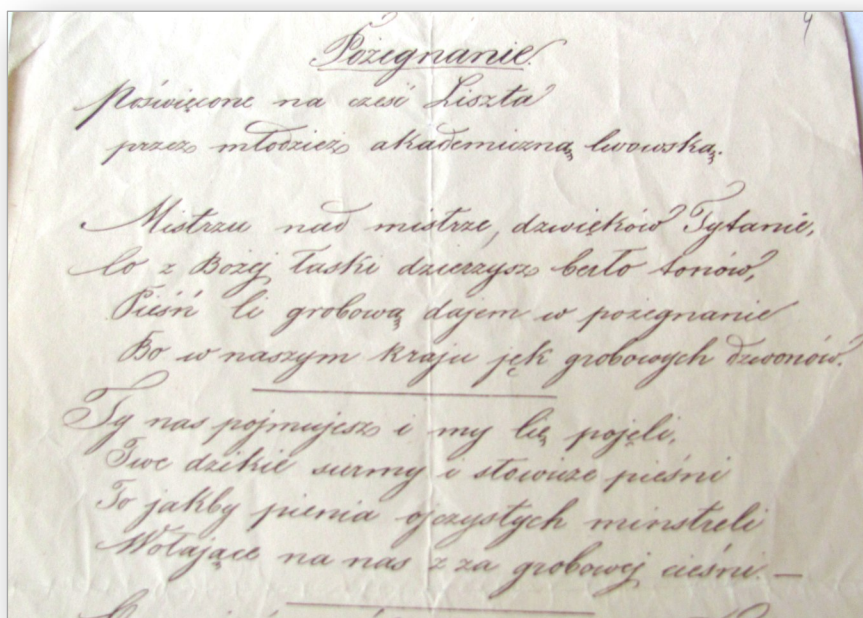 4
Pożegnanie.
Poświęcone na cześć Liszta
przez młodzież akademiczną lwowską.
Mistrzu nad mistrze, dzwięków Tytanie,
Co z Bożej łaski dzierżysz berło tonów,
Pieśń li grobową dajem w pożegnanie
Bo w naszym kraju jęk grobowych dzwonów.
Ty nas pojmujesz i my Cię pojęli,
Twe dzikie surmy i słowicze pieśni
To jakby pienia ojczystych minstreli
Wołające na nas z za grobowej cieśni. —